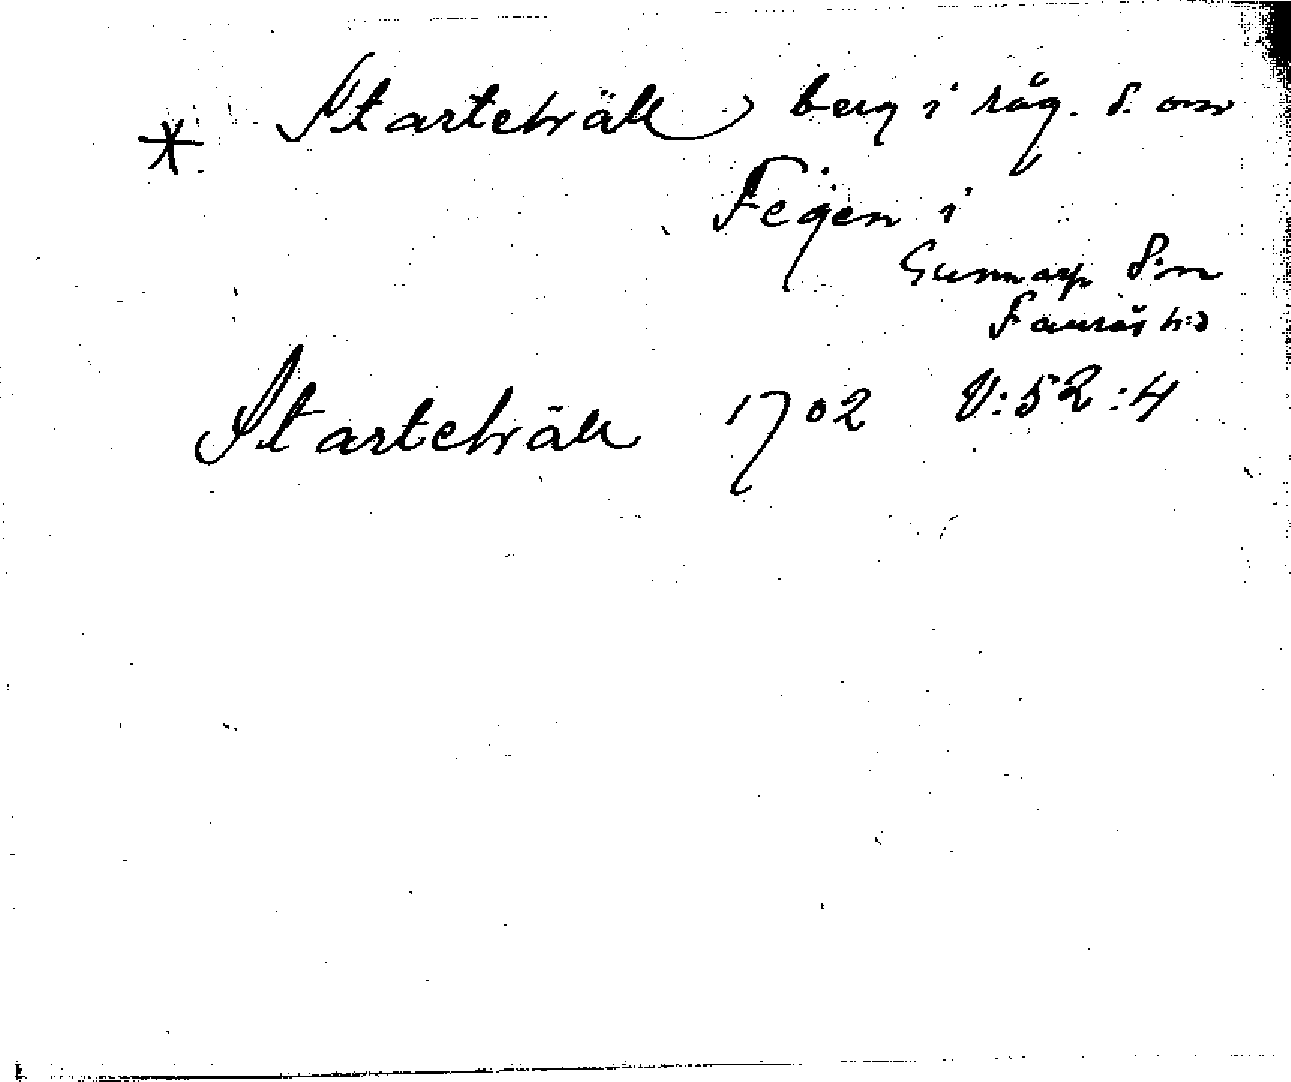 * Startehräll berg i råg. S. om
Fegen i
Gunnarp S:n
Faurås h:d
Startehräll 1702 V:52:4